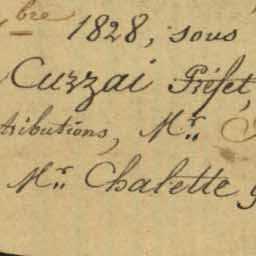 bre 1828, sous
Cuzzai Préfet,
tributions, Mr.
Mr. Chalette g